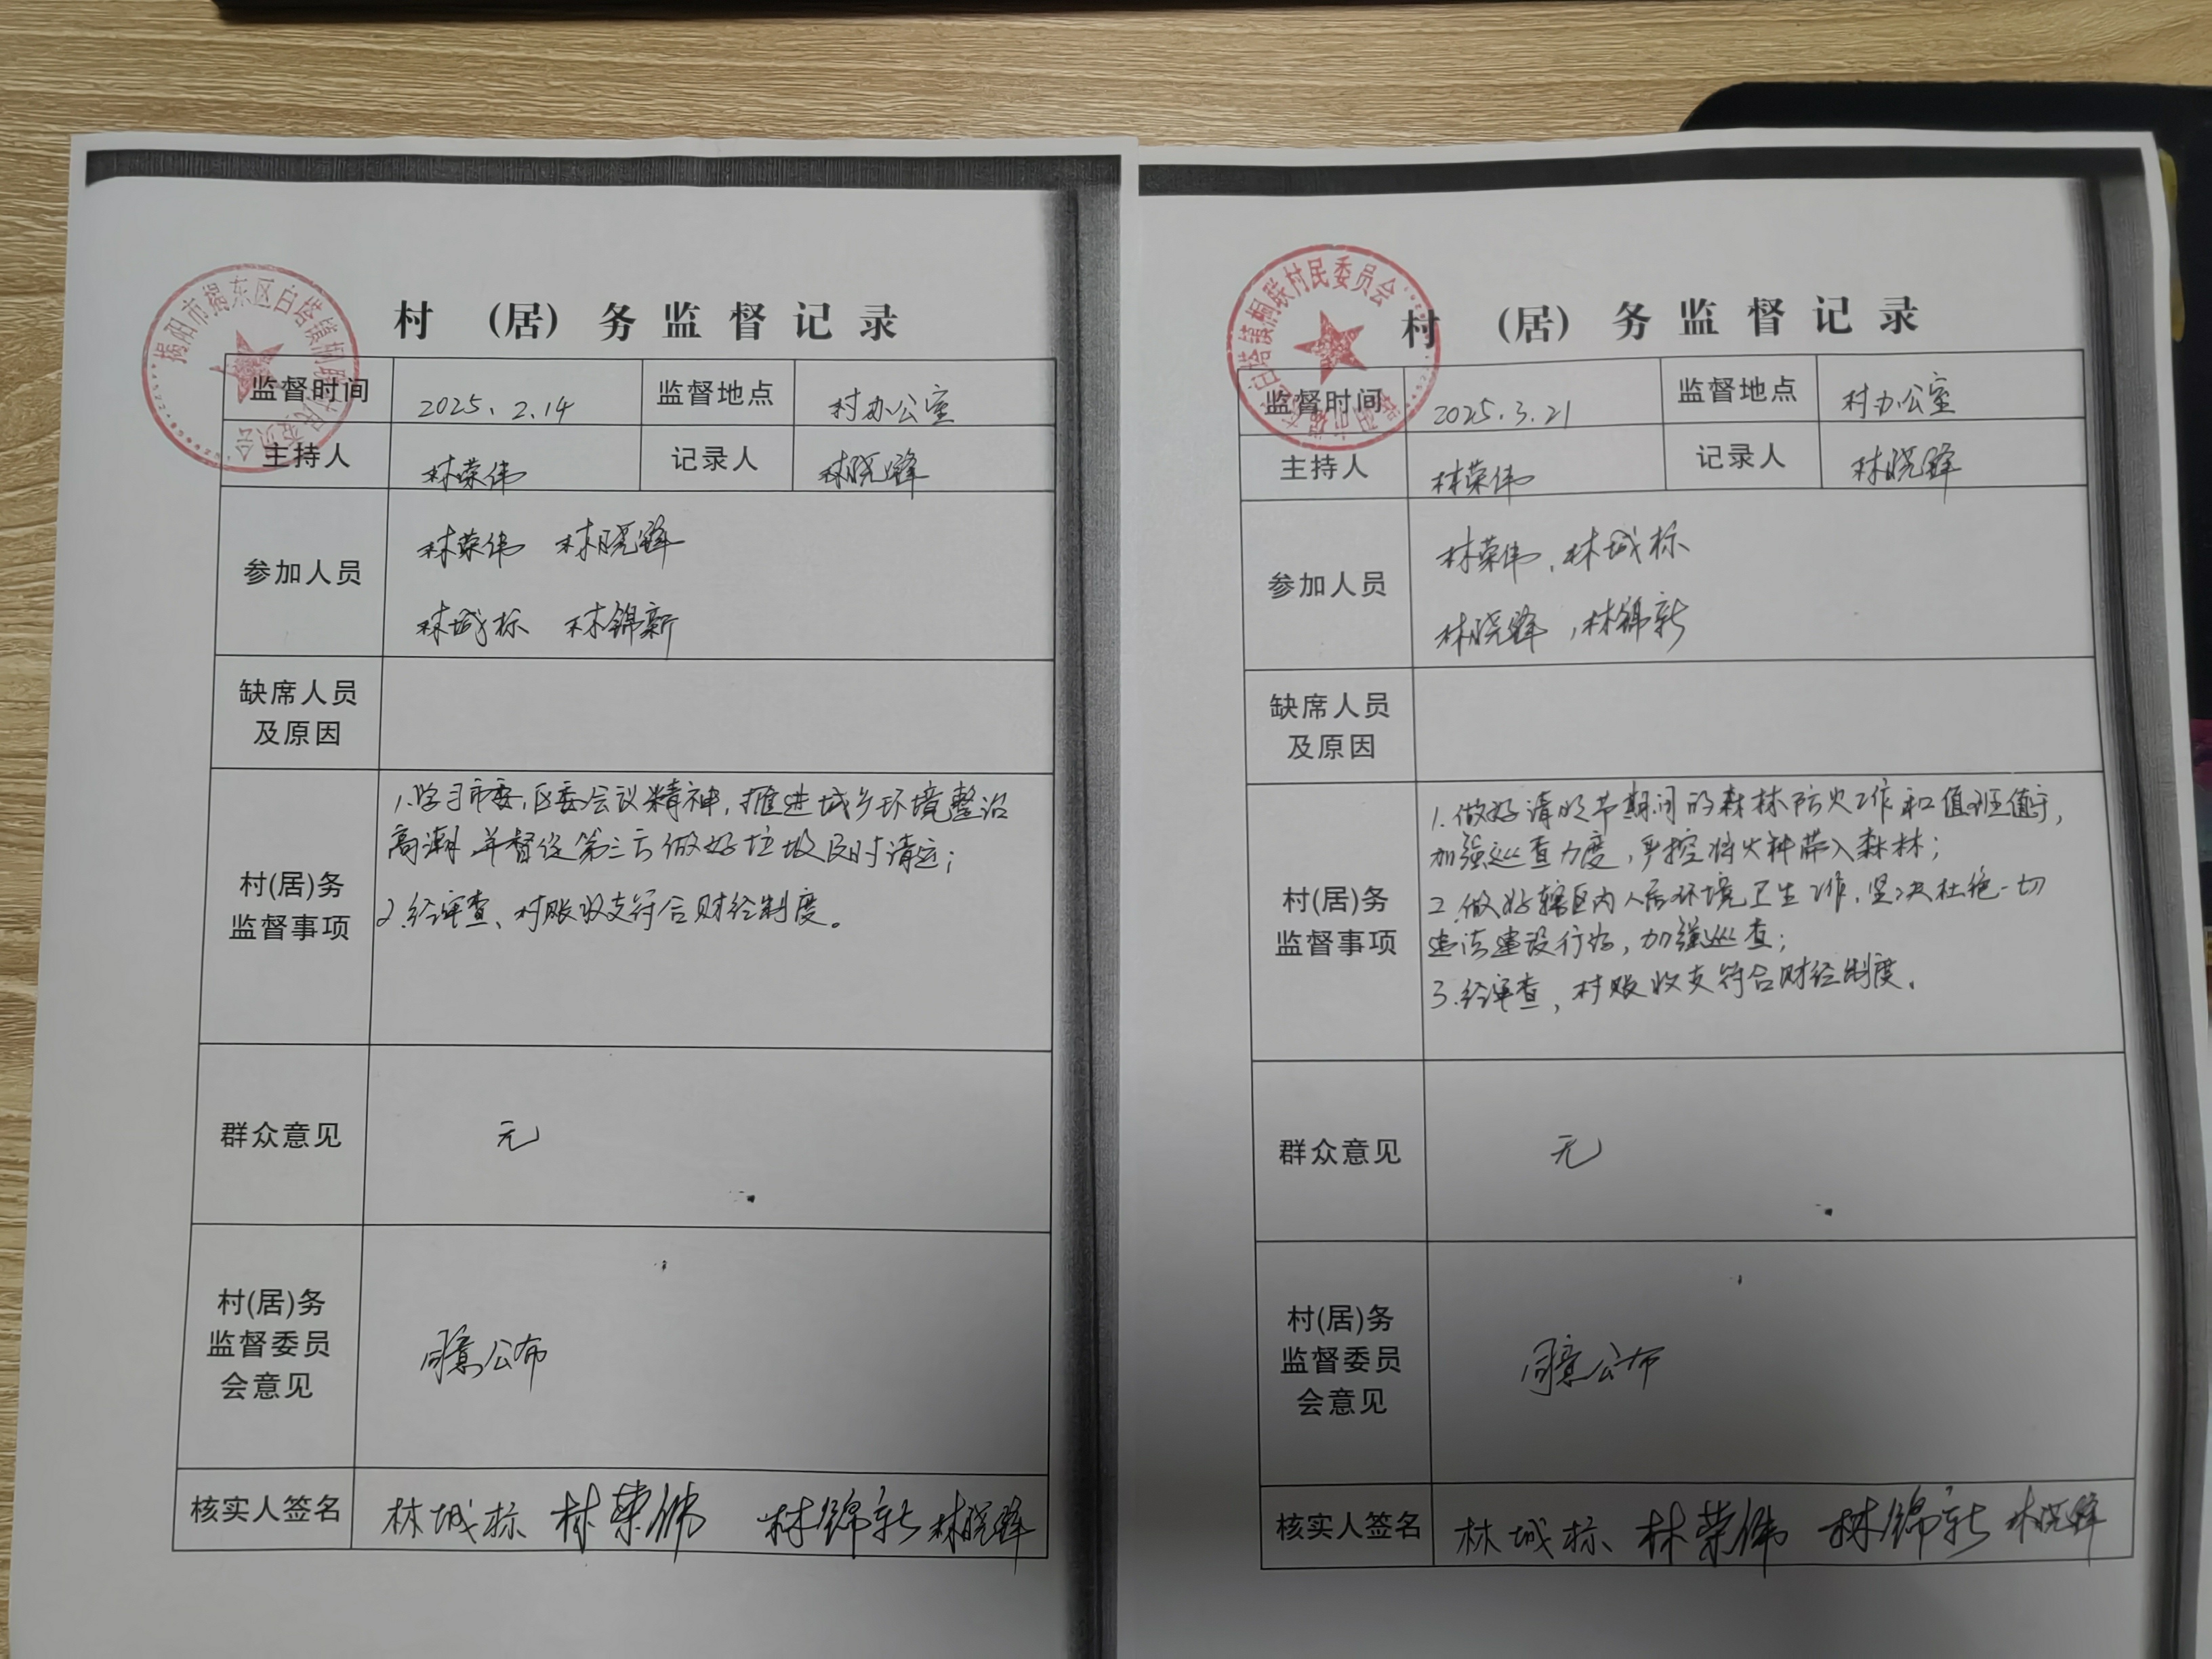 揭阳市揭东区白塔镇桐联村民委员会
村 （居） 务 监 督 记 录
监督时间 2025.2.14 监督地点 村办公室
主持人 林荣伟 记录人 林晓锋
参加人员
林荣伟 林晓锋
林城标 林锦新
缺席人员
及原因
村(居)务
监督事项
1.学习市委,区委会议精神,推进城乡环境整治
高潮,并督促第三方做好垃圾及时清运;
2.经审查、村账收支符合财经制度。
群众意见 无
村(居)务
监督委员
会意见
同意公布
核实人签名 林城标 林荣伟 林锦新 林晓锋
揭阳市揭东区白塔镇桐联村民委员会
村 （居） 务 监 督 记 录
监督时间 2025.3.21 监督地点 村办公室
主持人 林荣伟 记录人 林晓锋
参加人员
林荣伟,林城标
林晓锋,林锦新
缺席人员
及原因
村(居)务
监督事项
1.做好清明节期间的森林防火工作和值班值守,
加强巡查力度,严控将火种带入森林;
2.做好辖区内人居环境卫生工作,坚决杜绝一切
违法建设行为,加强巡查;
3.经审查,村账收支符合财经制度.
群众意见 无
村(居)务
监督委员
会意见
同意公布
核实人签名 林城标 林荣伟 林锦新 林晓锋